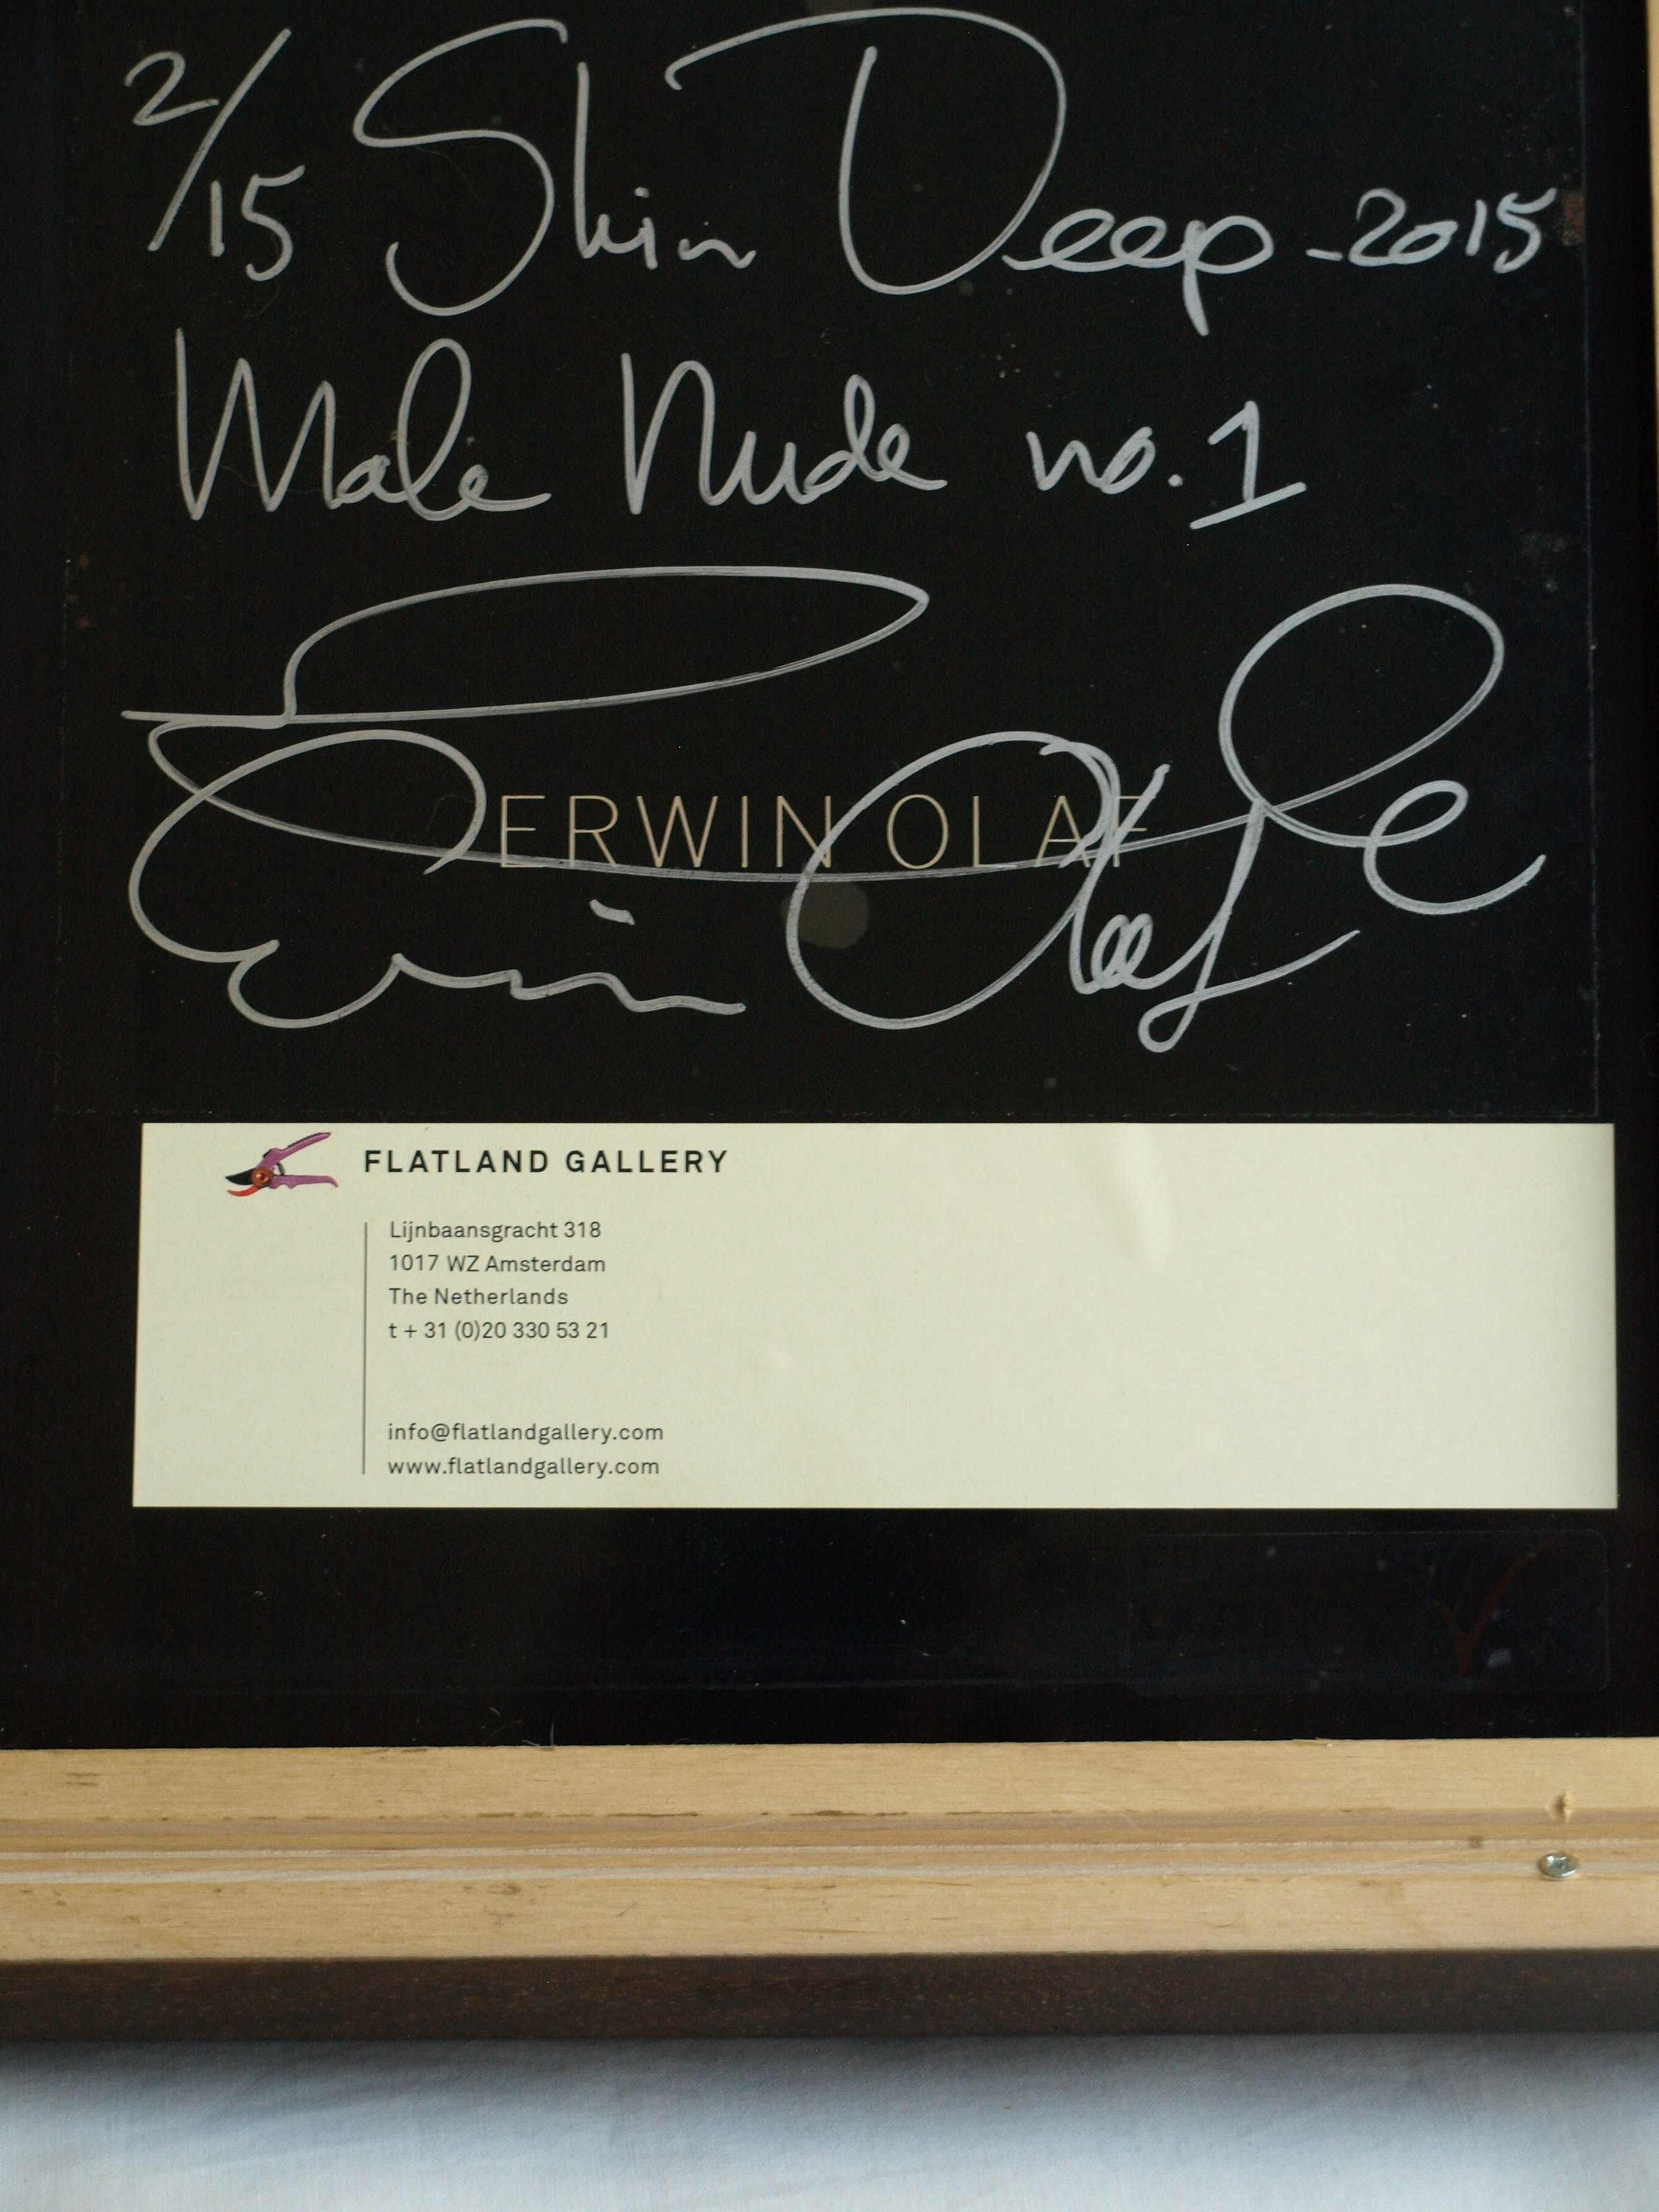 2/15 Skin Deep - 2015
Male Nude no. 1
ERWIN OLAF
Erwin Olaf
FLATLAND GALLERY
Lijnbaansgracht 318
1017 WZ Amsterdam
The Netherlands
t + 31 (0)20 330 53 21
info@flatlandgallery.com
www.flatlandgallery.com